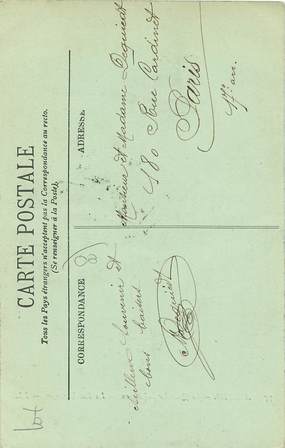 CARTE POSTALE
Tous les Pays étrangers n'acceptent pas la Correspondance au recto.
(Se renseigner à la Poste)
CORRESPONDANCE
Meilleur souvenir et
bons baisers
ADRESSE
Monsieur et Madame
180 Rue Cardinet
Paris
17e arr.